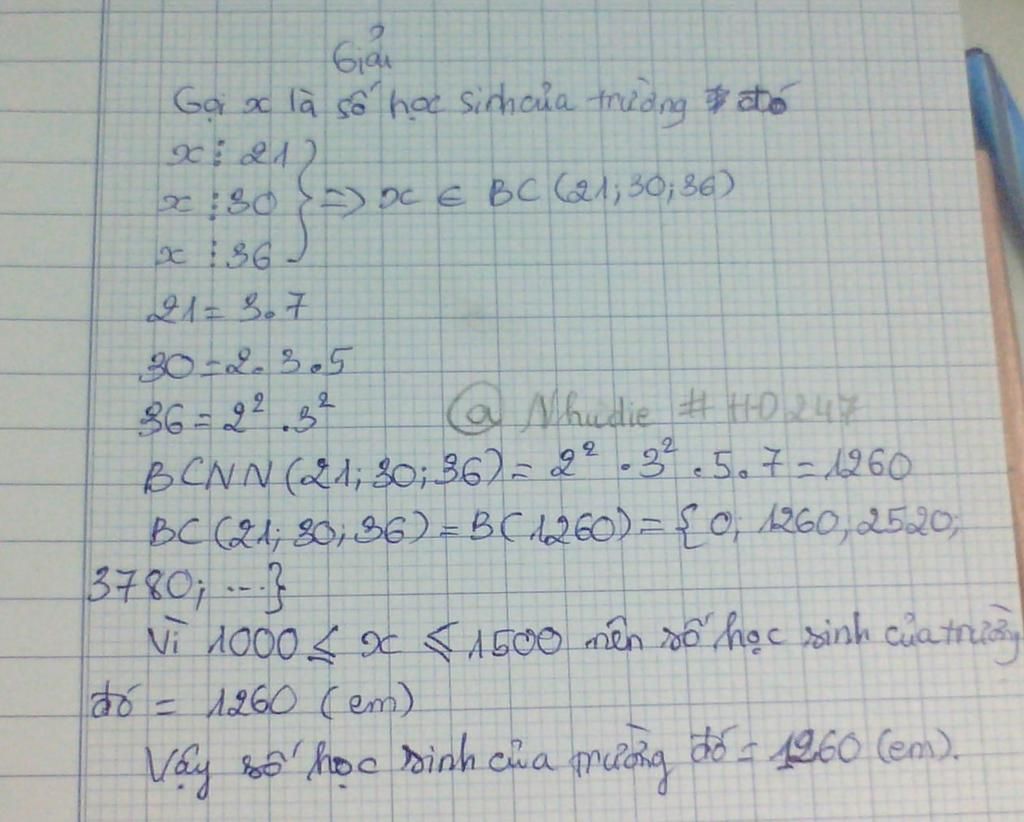 Giải
Gọi x là số học sinh của trường đó
x ⋮ 21
x ⋮ 30 } => x ∈ BC (21; 30; 36)
x ⋮ 36
21 = 3.7
30 = 2.3.5
36 = 2².3²
@ Nhudie # HD247
BCNN (21; 30; 36) = 2².3².5.7 = 1260
BC (21; 30; 36) = B(1260) = {0; 1260; 2520;
3780; ...}
Vì 1000 ≤ x ≤ 1500 nên số học sinh của trường
đó = 1260 (em)
Vậy số học sinh của trường đó = 1260 (em).